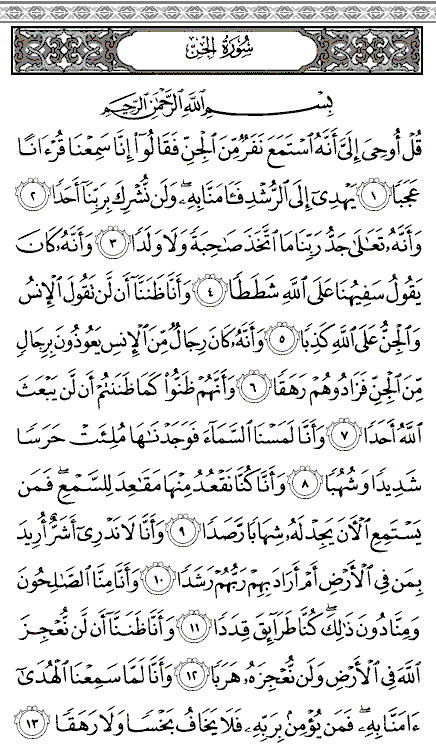 سُورَةُ الْجِنِّ
بِسْمِ اللَّهِ الرَّحْمَٰنِ الرَّحِيمِ
قُلْ أُوحِيَ إِلَيَّ أَنَّهُ اسْتَمَعَ نَفَرٌ مِّنَ الْجِنِّ فَقَالُوٓا۟ إِنَّا سَمِعْنَا قُرْءَانًا
عَجَبًا ١ يَهْدِىٓ إِلَى ٱلرُّشْدِ فَـَٔامَنَّا بِهِۦ ۖ وَلَن نُّشْرِكَ بِرَبِّنَآ أَحَدًا ٢
وَأَنَّهُۥ تَعَٰلَىٰ جَدُّ رَبِّنَا مَا ٱتَّخَذَ صَٰحِبَةً وَلَا وَلَدًا ٣ وَأَنَّهُۥ كَانَ
يَقُولُ سَفِيهُنَا عَلَى ٱللَّهِ شَطَطًا ٤ وَأَنَّا ظَنَنَّآ أَن لَّن تَقُولَ ٱلْإِنسُ
وَٱلْجِنُّ عَلَى ٱللَّهِ كَذِبًا ٥ وَأَنَّهُۥ كَانَ رِجَالٌ مِّنَ ٱلْإِنسِ يَعُوذُونَ بِرِجَالٍ
مِّنَ ٱلْجِنِّ فَزَادُوهُمْ رَهَقًا ٦ وَأَنَّهُمْ ظَنُّوا۟ كَمَا ظَنَنتُمْ أَن لَّن يَبْعَثَ
ٱللَّهُ أَحَدًا ٧ وَأَنَّا لَمَسْنَا ٱلسَّمَآءَ فَوَجَدْنَٰهَا مُلِئَتْ حَرَسًا
شَدِيدًا وَشُهُبًا ٨ وَأَنَّا كُنَّا نَقْعُدُ مِنْهَا مَقَٰعِدَ لِلسَّمْعِ ۖ فَمَن
يَسْتَمِعِ ٱلْـَٔانَ يَجِدْ لَهُۥ شِهَابًا رَّصَدًا ٩ وَأَنَّا لَا نَدْرِىٓ أَشَرٌّ أُرِيدَ
بِمَن فِى ٱلْأَرْضِ أَمْ أَرَادَ بِهِمْ رَبُّهُمْ رَشَدًا ١٠ وَأَنَّا مِنَّا ٱلصَّٰلِحُونَ
وَمِنَّا دُونَ ذَٰلِكَ ۖ كُنَّا طَرَآئِقَ قِدَدًا ١١ وَأَنَّا ظَنَنَّآ أَن لَّن نُّعْجِزَ
ٱللَّهَ فِى ٱلْأَرْضِ وَلَن نُّعْجِزَهُۥ هَرَبًا ١٢ وَأَنَّا لَمَّا سَمِعْنَا ٱلْهُدَىٰٓ
ءَامَنَّا بِهِۦ ۖ فَمَن يُؤْمِنۢ بِرَبِّهِۦ فَلَا يَخَافُ بَخْسًا وَلَا رَهَقًا ١٣